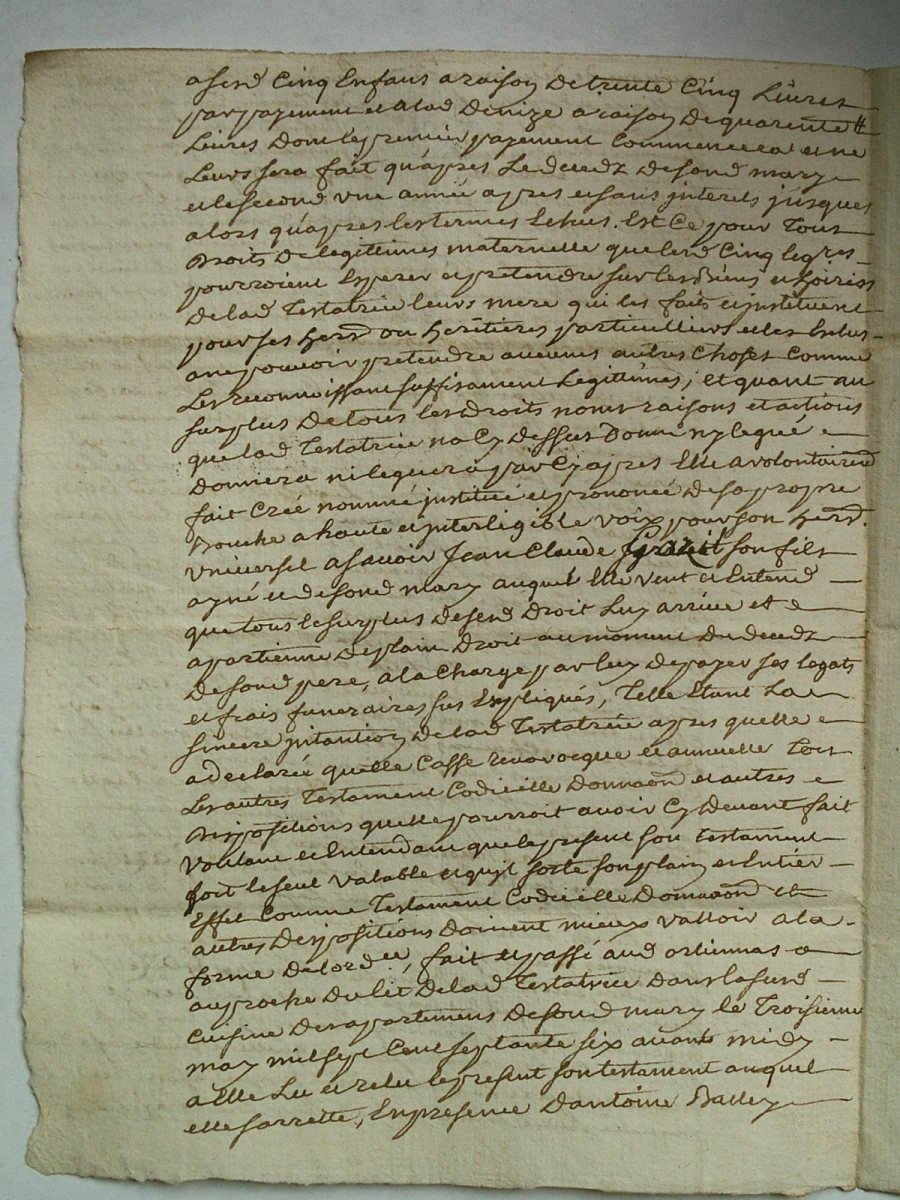 a sesd Cinq Enfans a raison De trente Cinq Livres
par payement et a lad Denize a raison De quarente
Livres Dont le premier payement Commencera et ne
Leurs sera fait qu'apres Le decedz de sond mary
et le second une année apres et sans jnterets jusques
alors qu'apres les termes Echus. Est Ce pour Tout
Droits De legittimes maternelle que lesd Cinq leg.res
pourroient Esperer et pretendre sur les Biens et hoiries
De lad Testatrice leurs mere qui les fait et jnstituent
pour ses herd ou heritieres particulliers et les Exclus
a ne pouvoir pretendre aucunes autres Choses Comme
Les reconnoissant suffisament Legittimes, et quant au
surplus De tous les Droits noms raisons et actions
que lad Testatrice na Cy Dessus Donné ny legué
Donnera ni leguera par Cy apres Elle a volontaired
fait Créé nommé jnstitué et prononcé De sa propre
Bouche a haute et jnterligible voix pour son herd.
Universel a savoir Jean Claude son fils
ayné et de sond mary auquel Elle veut et Entend
que tous le surplus De sesd Droit Luy arrive et
apartienne De plain Droit au moment Du decedz
De sond pere, a la Charge par luy De payer ses legats
et frais funeraires sus Expliqués, Telle Etant La
sincere jntantion De lad Testatrice apres quelle
a declaré quelle Casse revocque et annulle Tout
Les autres Testament Codicille Donnaon et autres
Dispositions quelle pourroit avoir Cy Devant fait
Voulant et Entendant que le present son testament
soit le seul valable et quil sorte son plain et Entier
Effet Comme Testament Codicille Donnaon et
autres Dispositions Doivent mieux valloir a la
forme De lordee, fait et passé aud orlionnas
au proche Du lit De lad Testatrice Dans la susd
Cuisine Des apartemens De sond mary le Troisieme
may mil sept Cent septante six avant midy
a Elle Lu et relu le present son testament auquel
elle sarrette, En presence D'antoine Balley